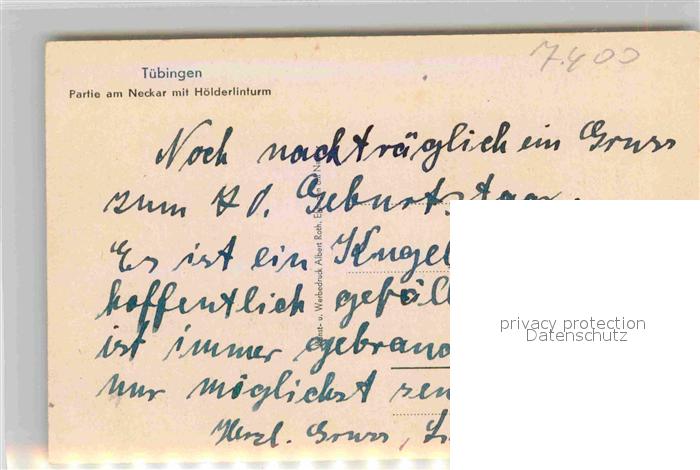 7.400
Tübingen
Partie am Neckar mit Hölderlinturm
Noch nachträglich ein Gruss
zum 70. Geburtstag.
Es ist ein Kugel
hoffentlich gefäll
ist immer gebrauc
nur möglichst
Herzl. Gruss,
Kunst- u. Werbedruck Albert Rath,
privacy protection
Datenschutz